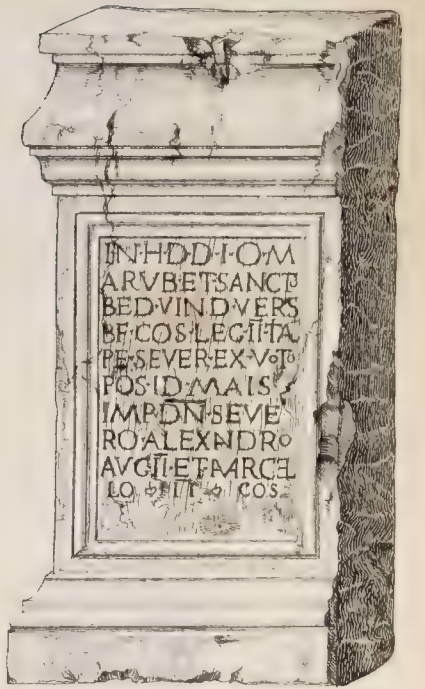 IN·H·D·D·I·O·M
ARVB·ET·SANCTO
BED·VIND·VERS
BF·COS·LEG·II·ITA
PE·SEVER·EX·VOTO
POS·ID·MAIS
IMP·DN·SEVE
RO·ALEXANDRO
AVG·II·ET·MARCEL
LO II COS